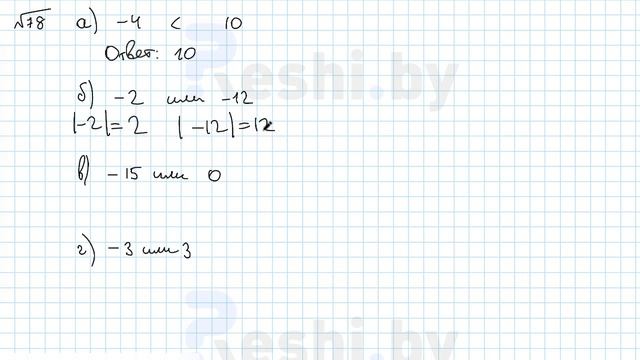 √78 а) -4 < 10
Ответ: 10
Reshi.by
б) -2 или -12
|-2|=2 |-12|=12
в) -15 или 0
г) -3 или 3
Reshi.by